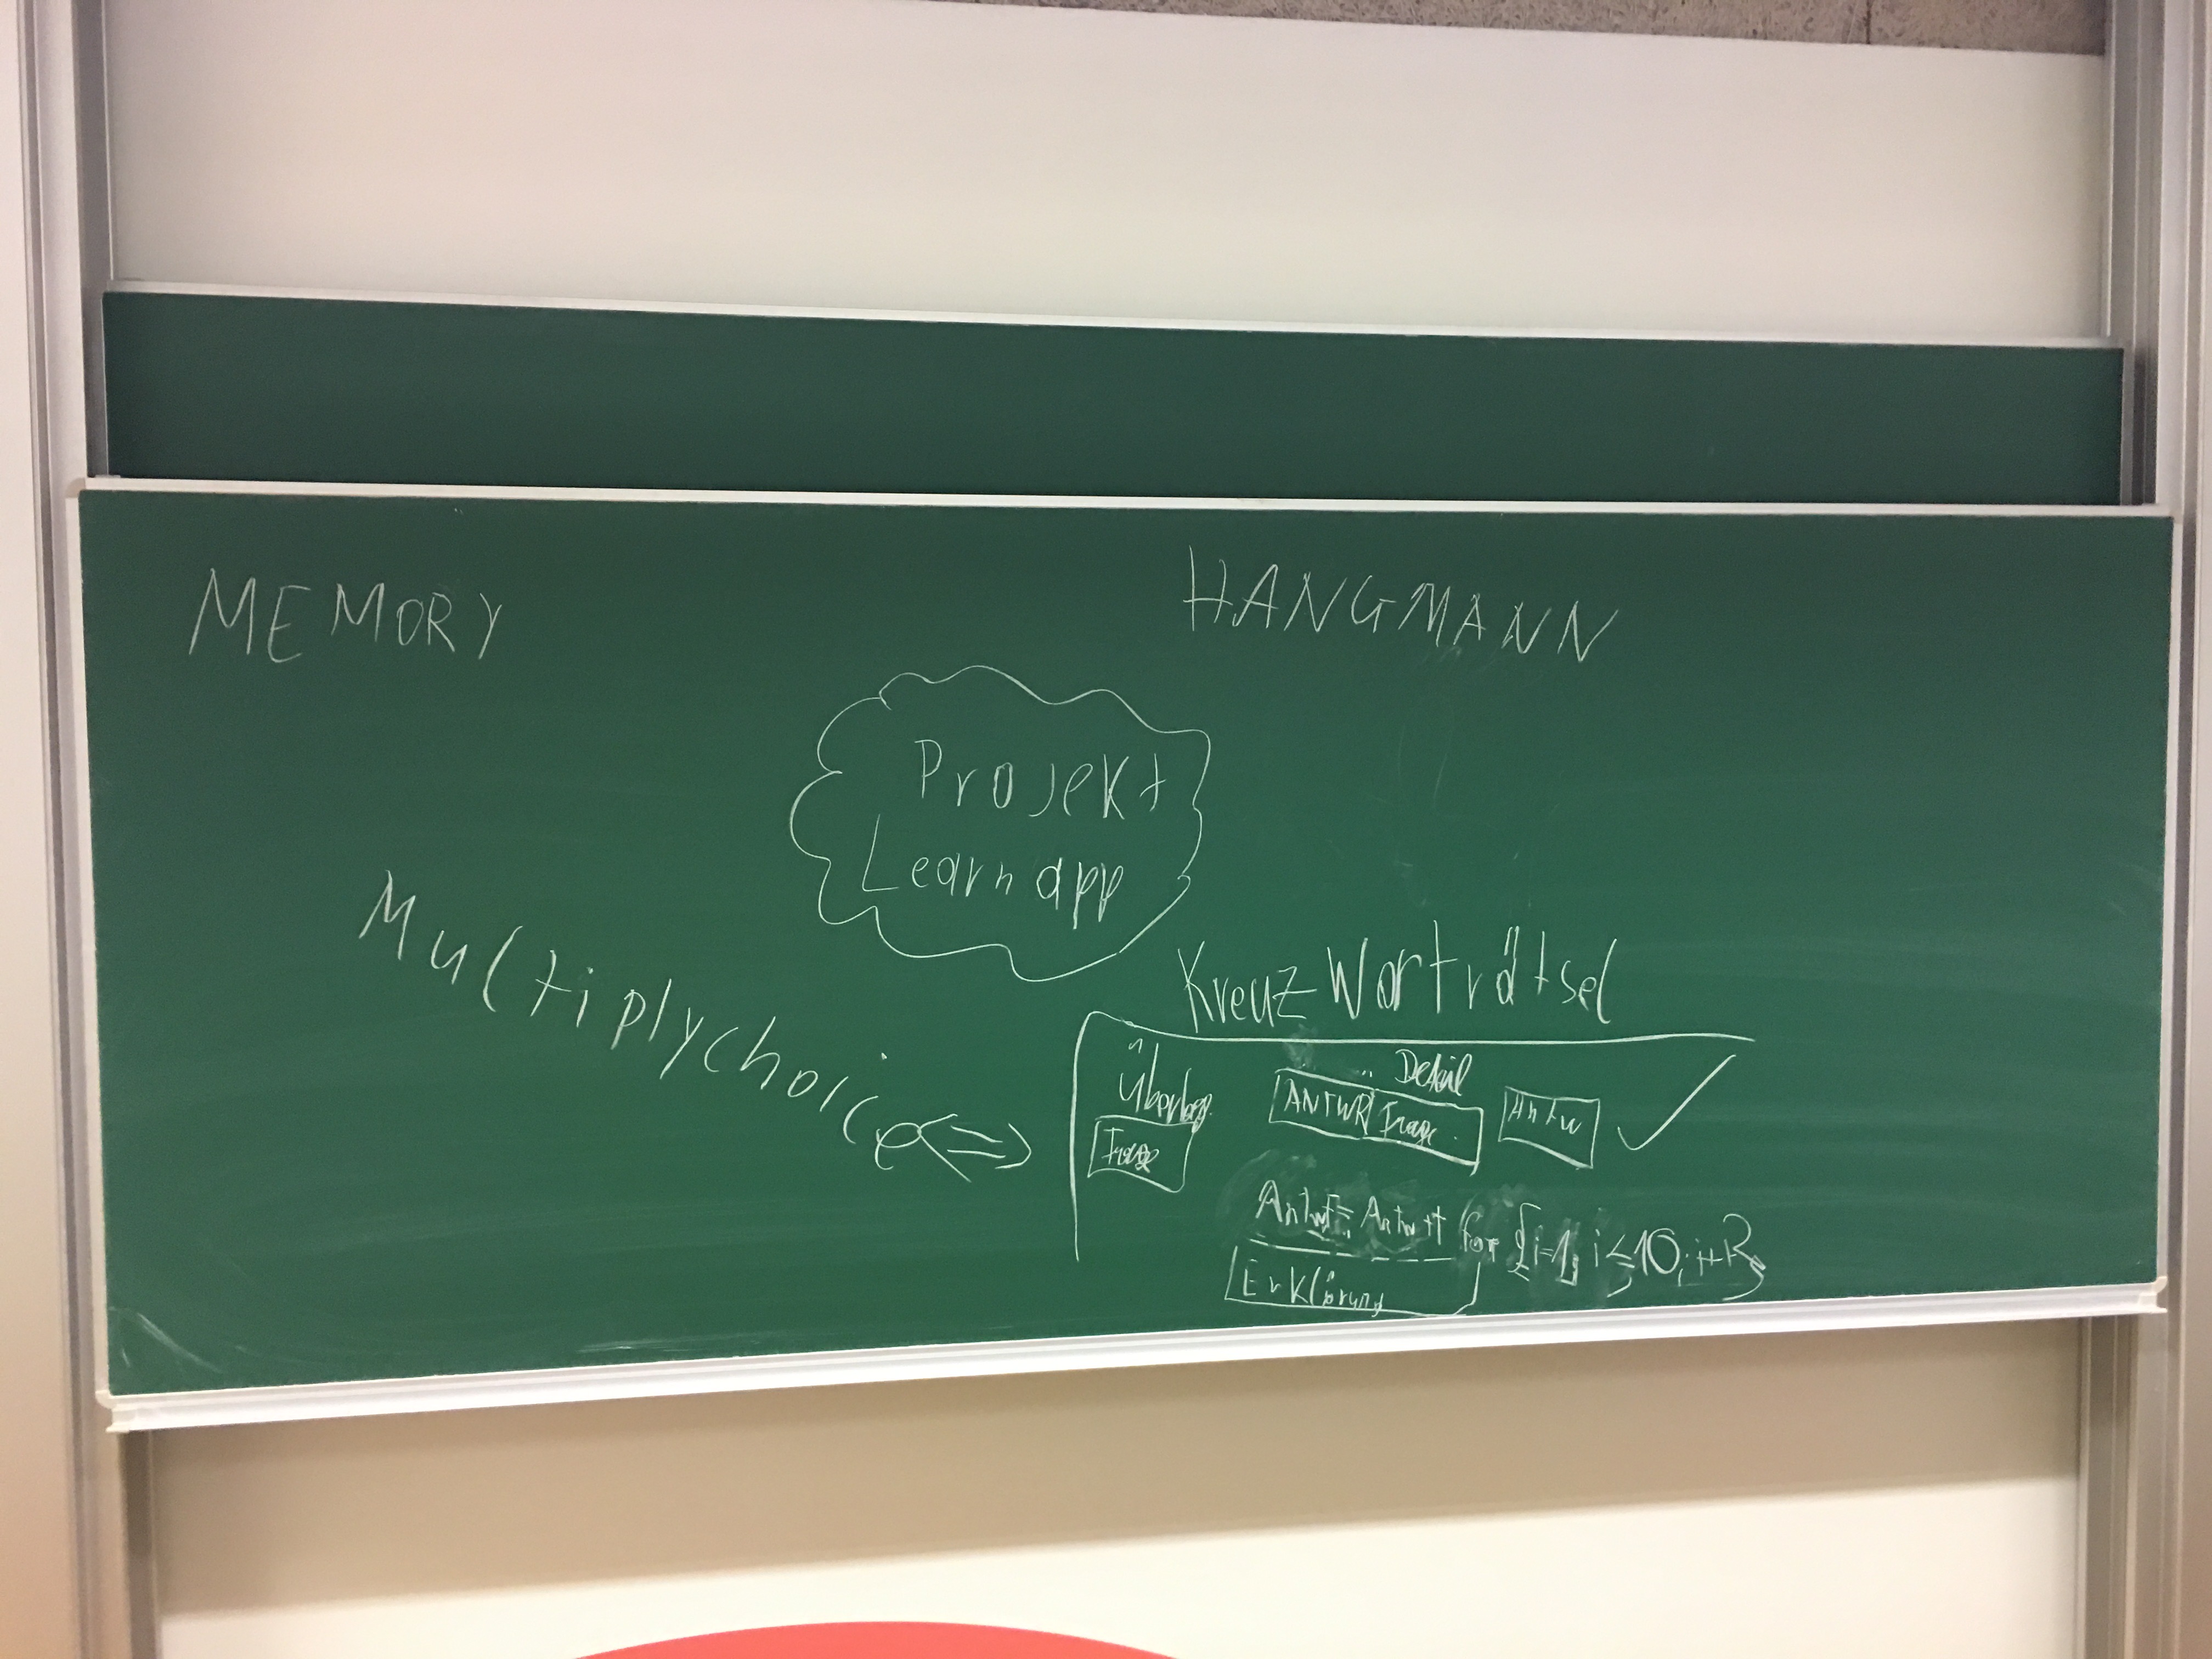 MEMORY
HANGMANN
Projekt
Learnapp
Multiplychoice
Kreuzworträtsel
Detail
ANTWR Frage
Antw
Frage
Antw = Antw++ for {i=1; i≤10; i++}
Erklärung